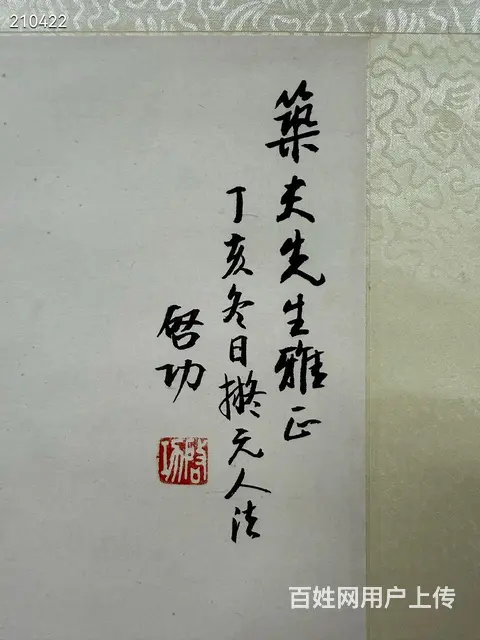 210422
築夫先生雅正
丁亥冬日擬元人法
啓功
啓功
百姓网用户上传